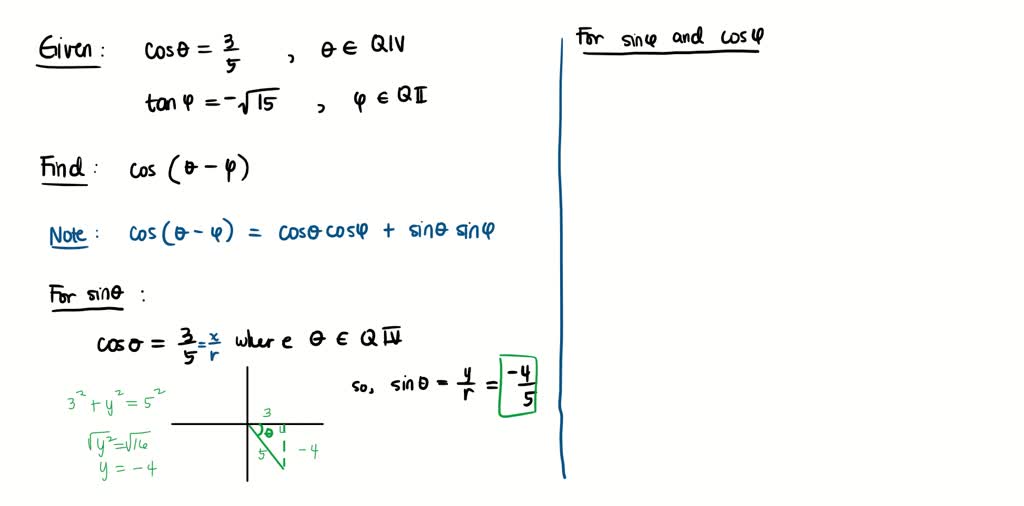 Given: cosθ = 3/5 , θ ∈ QIV
tan φ = -√15 , φ ∈ QII
Find: cos (θ - φ)
Note: cos(θ - φ) = cosθ cosφ + sinθ sinφ
For sinθ :
cosθ = 3/5 = x/r where θ ∈ QIV
so, sinθ = y/r = -4/5
3² + y² = 5²
√y² = √16
y = -4
3
θ
5
-4
For sinφ and cosφ